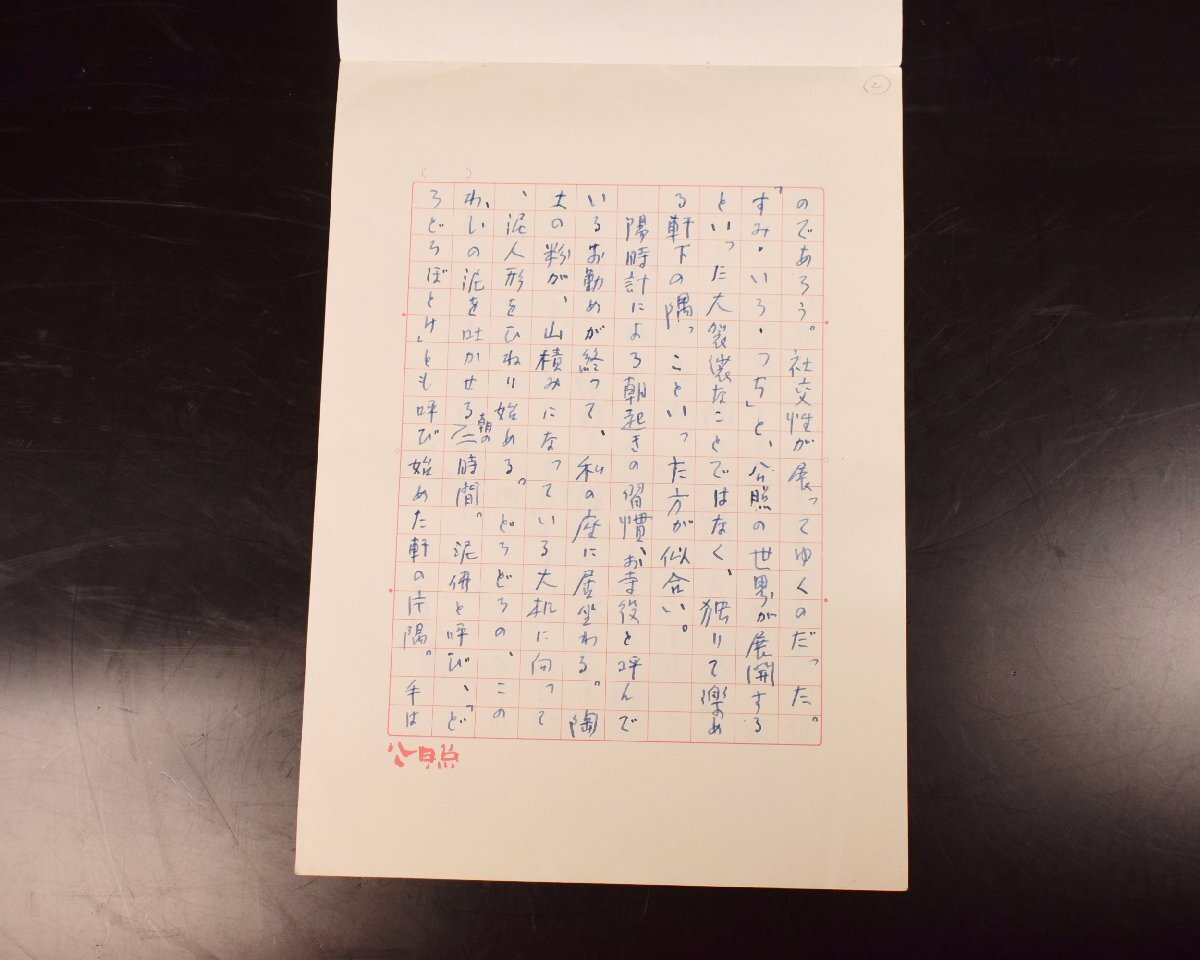 2
のであろう。社交性が展ってゆくのだった。
「すみ・いろ・つち」と、分照の世界が展開する
といった大袈裟なことではなく、独りで楽め
る軒下の隅っこといった方が似合い。
陽時計による朝起きの習慣、お寺役と呼んで
いるお勤めが終って、私の座に居坐わる。陶
土の粉が、山積みになっている大机に向って
、泥人形をひねり始める。どろどろの、この
わ、しの泥を吐かせる朝の二時間。泥仏と呼び、「ど
ろどろぼとけ」とも呼び始めた軒の片隅。手は